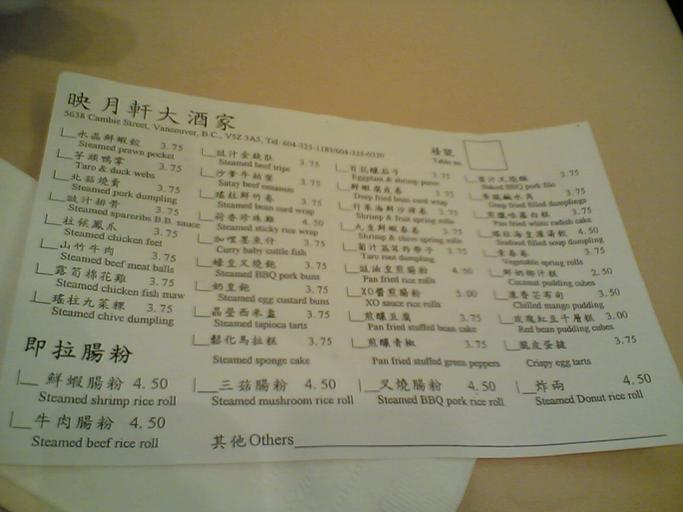 映月軒大酒家
5638 Cambie Street, Vancouver, B.C., V5Z 3A5, Tel: 604-325-1189/604-325-0320
檯號
Table no.
水晶鮮蝦餃 3.75
Steamed prawn pocket
芋頭鴨掌 3.75
Taro & duck webs
北菇燒賣 3.75
Steamed pork dumpling
豉汁排骨 3.75
Steamed spareribs B.B. sauce
3.75
Steamed chicken feet
山竹牛肉 3.75
Steamed beef meat balls
露筍棉花雞 3.75
Steamed chicken fish maw
瑤柱九菜粿 3.75
Steamed chive dumpling
豉汁金錢肚 3.75
Steamed beef tripe
沙爹牛柏葉 3.75
Satay beef omasum
瑤柱鮮竹卷 3.75
Steamed bean curd wrap
荷香珍珠雞 4.50
Steamed sticky rice wrap
咖喱墨魚仔 3.75
Curry baby cuttle fish
蠔皇叉燒飽 3.75
Steamed BBQ pork buns
奶皇飽 3.75
Steamed egg custard buns
晶瑩西米盞 3.75
Steamed tapioca tarts
鬆化馬拉糕 3.75
Steamed sponge cake
百花釀茄子 3.75
Eggplant & shrimp puree
鮮蝦腐皮卷 3.75
Deep fried bean curd wrap
什果海鮮沙律卷 3.75
Shrimp & fruit spring rolls
九王鮮蝦春卷 3.75
Shrimp & chive spring rolls
3.75
Taro root dumpling
豉油皇煎腸粉 4.50
Pan fried rice rolls
XO醬煎腸粉 5.00
XO sauce rice rolls
煎釀豆腐 3.75
Pan fried stuffed bean cake
煎釀青椒 3.75
Pan fried stuffed green peppers
蜜汁叉燒酥 3.75
Baked BBQ pork filo
3.75
Deep fried filled dumplings
煎臘味蘿白糕 3.75
Pan fried white radish cake
瑤柱海皇灌湯餃 4.50
Seafood filled soup dumpling
3.75
Vegetable spring rolls
鮮奶椰汁糕 2.50
Coconut pudding cubes
凍香芒布甸 3.50
Chilled mango pudding
玫瑰紅豆千層糕 3.00
Red bean pudding cubes
脆皮蛋撻 3.75
Crispy egg tarts
即拉腸粉
鮮蝦腸粉 4.50
Steamed shrimp rice roll
三菇腸粉 4.50
Steamed mushroom rice roll
叉燒腸粉 4.50
Steamed BBQ pork rice roll
炸兩 4.50
Steamed Donut rice roll
牛肉腸粉 4.50
Steamed beef rice roll
其他Others